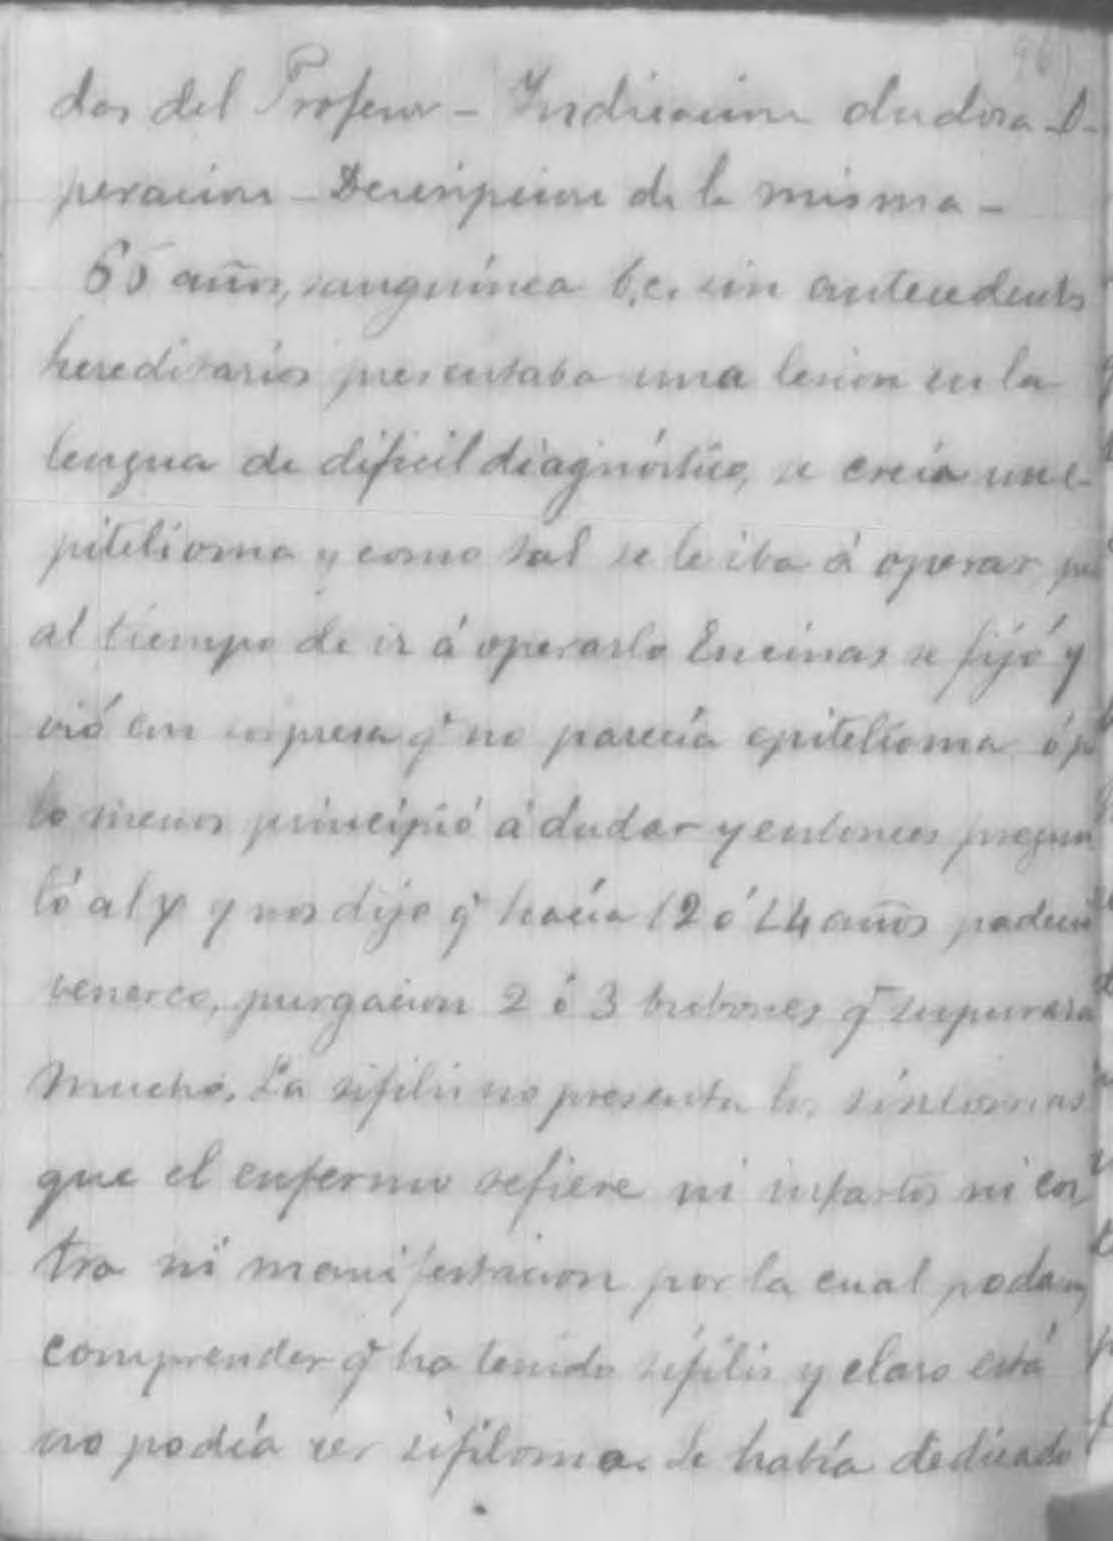 das del Profesor - Indicacion dudosa - O-
peracion - Descripcion de la misma -
65 años, sanguínea b.c. sin antecedents
hereditarios presentaba una lesion en la
lengua de dificil diagnóstico, se creía un e-
pitelioma y como tal se le iba á operar, pe
al tiempo de ir á operarlo Encinas se fijó y
vió con sorpresa q̃ no parecía epitelioma ó p
lo menos principió á dudar y entonces pregun
tó al y nos dijo q̃ hacía 12 ó 14 años padeció
venereo, purgacion 2 ó 3 bubones q̃ supuraron
mucho. La sifilis no presenta los síntomas
que el enfermo refiere ni infartos ni cos
tra ni manifestacion por la cual podam
comprender q̃ ha tenido sífilis y claro está
no podía ser sifiloma. Se había dedicado